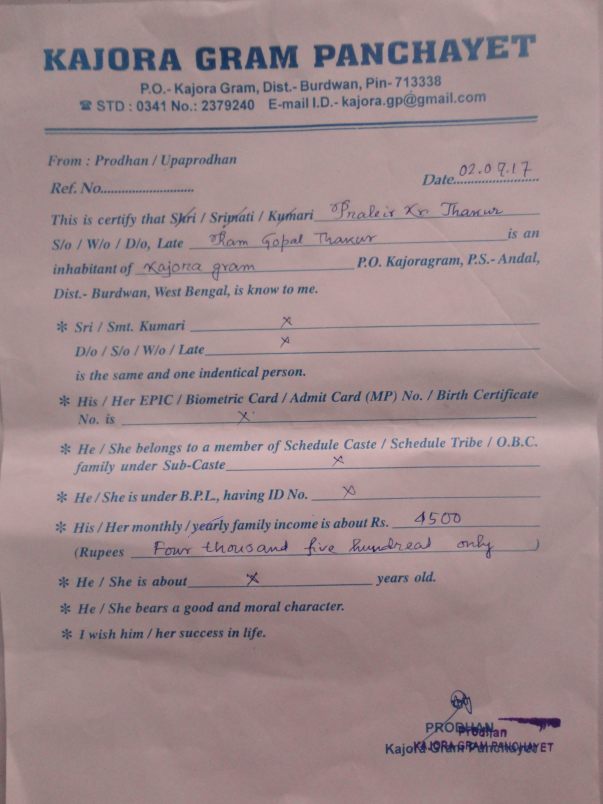 KAJORA GRAM PANCHAYET
P.O.- Kajora Gram, Dist.- Burdwan, Pin- 713338
☎ STD : 0341 No.: 2379240 E-mail I.D.- kajora.gp@gmail.com
From : Prodhan / Upaprodhan
Ref. No............................
Date 02.07.17
This is certify that Shri / Srimati / Kumari Kr. Thakur
S/o / W/o / D/o, Late Ram Gopal Thakur is an
inhabitant of Kajora gram P.O. Kajoragram, P.S.- Andal,
Dist.- Burdwan, West Bengal, is know to me.
* Sri / Smt. Kumari x
D/o / S/o / W/o / Late x
is the same and one indentical person.
* His / Her EPIC / Biometric Card / Admit Card (MP) No. / Birth Certificate
No. is x
* He / She belongs to a member of Schedule Caste / Schedule Tribe / O.B.C.
family under Sub-Caste x
* He / She is under B.P.L., having ID No. x
* His / Her monthly / yearly family income is about Rs. 4500
(Rupees Four thousand five hundread only )
* He / She is about x years old.
* He / She bears a good and moral character.
* I wish him / her success in life.
PRODHAN
Prodhan
Kajora Gram Panchayet
KAJORA GRAM PANCHAYET